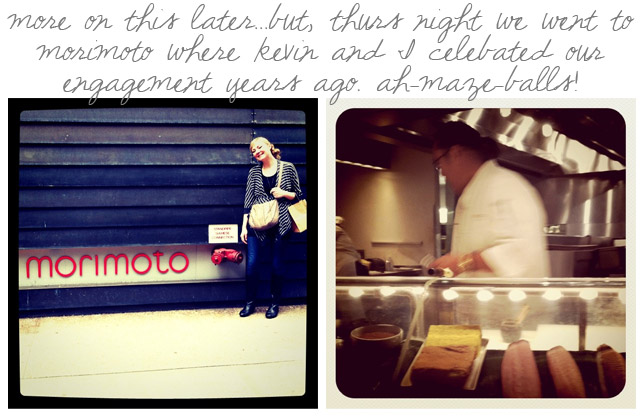 more on this later...but, thurs night we went to
morimoto where kevin and I celebated our
engagement years ago. ah-maze-balls!
morimoto